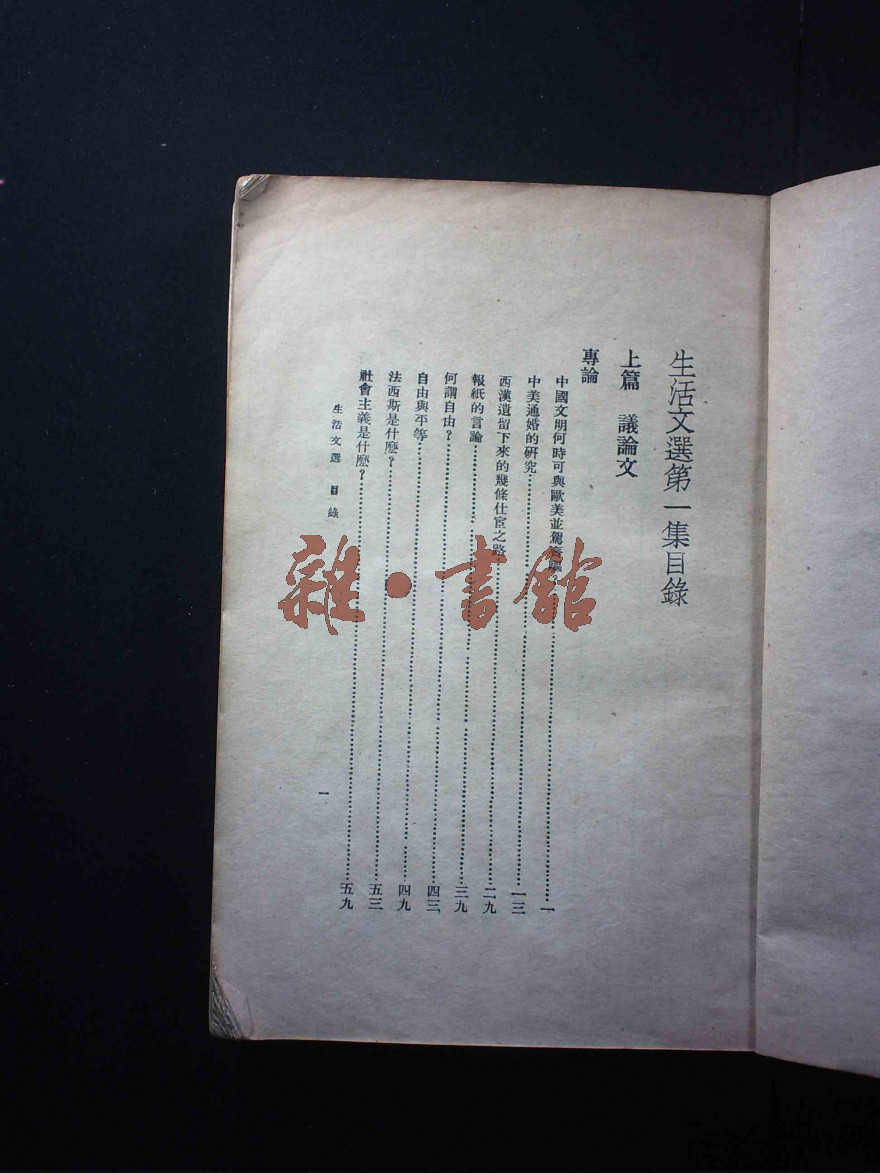 生活文選第一集目錄
上篇 議論文
專論
中國文明何時可與歐美並駕齊驅?……一
中美通婚的研究……一三
西漢遺留下來的幾條仕宦之路……二九
報紙的言論……三九
何謂自由?……四三
自由與平等……四九
法西斯是什麽?……五三
社會主義是什麽?……五九
生活文選 目錄
一
雜·書館